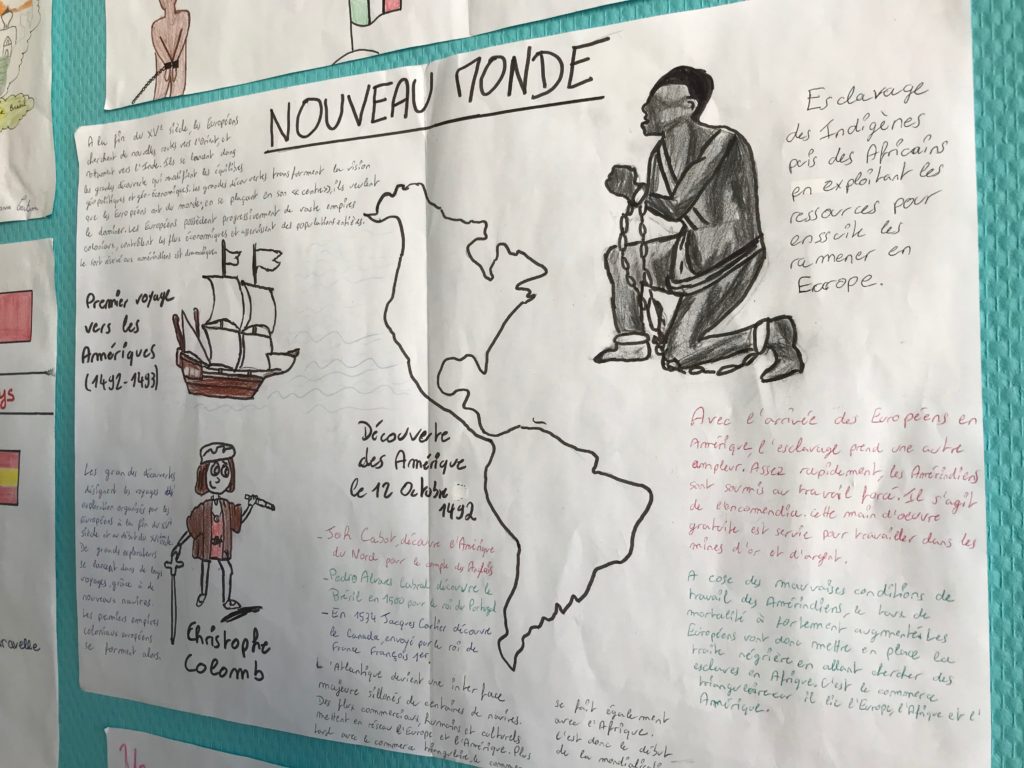 NOUVEAU MONDE
A la fin du XVe siècle, les Européens
cherchent de nouvelles routes vers l'Orient, et
notamment vers l'Inde. Ils se lancent dans
les grandes découverte qui modifient les équilibres
géopolitiques et géo-économiques. Les grandes découvertes transforment la vision
que les Européens ont du monde, en se plaçant en son centre, ils veulent
le dominer. Les Européens possèdent progressivement de vaste empires
coloniaux, contrôlant les flux économiques et asservissent des populations entières.
Le sort réservé aux amérindiens est dramatique.
Premier voyage
vers les
Amériques
(1492-1493)
Esclavage
des Indigènes
puis des Africains
en exploitant les
ressources pour
enssuite les
ramener en
Europe.
Les grandes découvertes
désignent les voyages
exploration organisés par les
Européens à la fin du XVe
siècle et au début du XVIe siècle.
De grands explorateurs
se lancent dans de longs
voyages, grâce à de
nouveaux navires.
Les premiers empires
coloniaux européens
se forment alors.
Christophe
Colomb
Découverte
des Amérique
le 12 Octobre
1492
- Joh Cabot, découvre l'Amérique
du Nord pour le compte des Anglais
- Pedro Alvares Cabral découvre le
Brésil en 1500 pour le roi du Portugal
- En 1534 Jacques Cartier découvre
le Canada, envoyé par le roi de
France François 1er.
L'Atlantique devient une interface
majeure sillonés de centaines de navires.
Des flux commerciaux, humains et culturels
mettent en réseau l'Europe et l'Amérique. Plus
tard avec le commerce triangulaire, le
se fait également
avec l'Afrique.
C'est donc le début
de la
Avec l'arrivée des Européens en
Amérique, l'esclavage prend une autre
ampleur. Assez rapidement, les Amérindiens
sont soumis au travail forcé. Il s'agit
de l'encomendia. Cette main d'oeuvre
gratuite est servie pour travailler dans les
mines d'or et d'argent.
A cose des mauvaises conditions de
travail des Amérindiens, le taux de
mortalité à fortement augmenté. Les
Européens vont donc mettre en place la
traite négrière en allant chercher des
esclaves en Afrique. C'est le commerce
triangulaire car il lie l'Europe, l'Afrique et l'
Amérique.